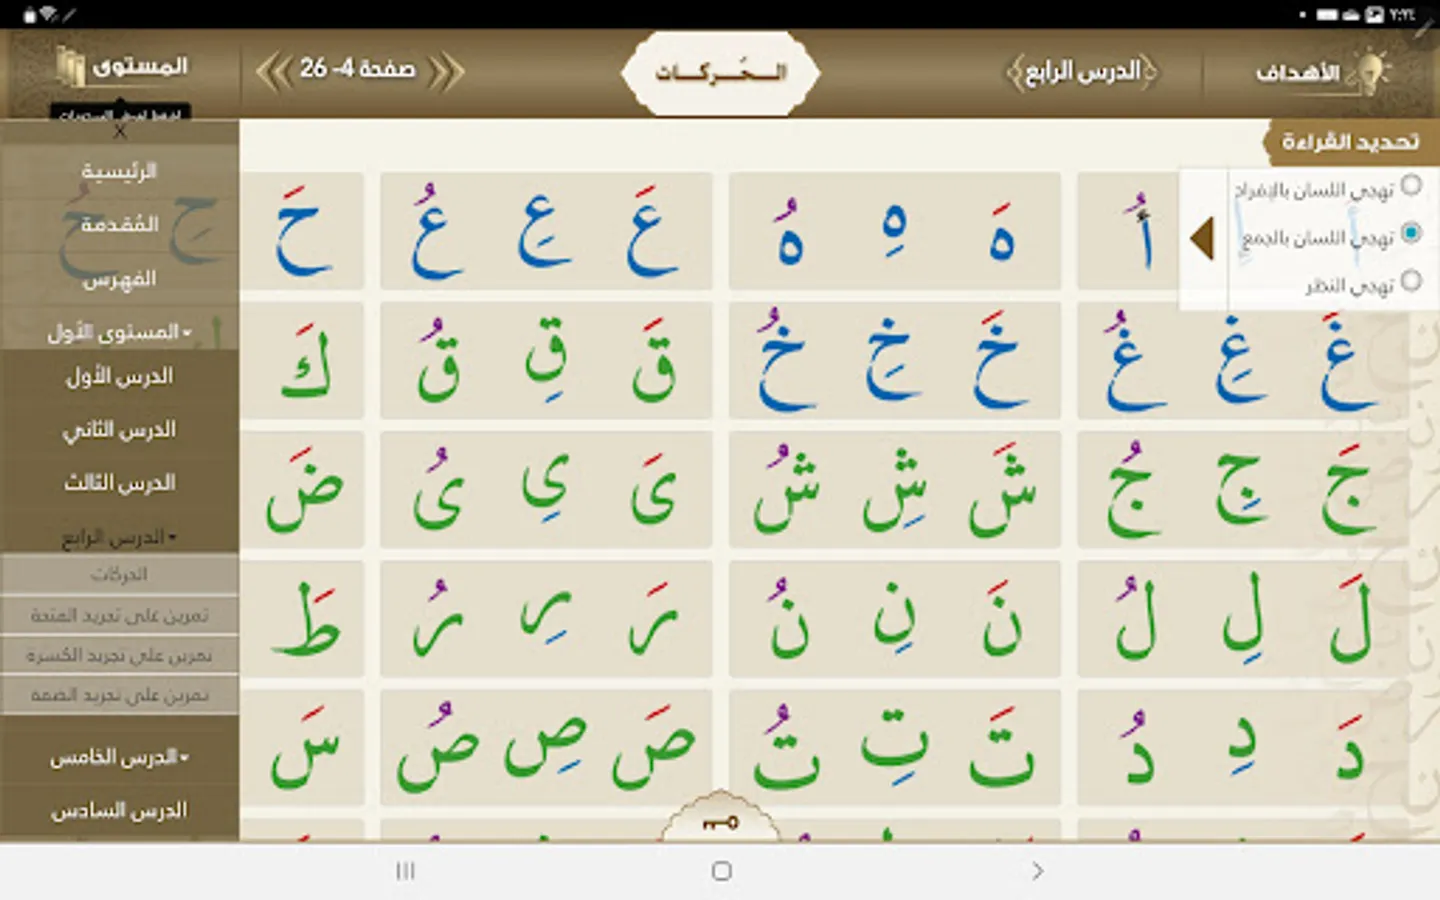 ٢:٢٤
الأهداف
الدرس الرابع
الـحَـركـات
صفحة 4- 26
المستوى
تحديد القراءة
تهجي اللسان بالإفراد
تهجي اللسان بالجمع
تهجي النظر
أُ
هَ هِ هُ
عَ عِ عُ
حَ حِ حُ
غَ غِ غُ
خَ خِ خُ
قَ قِ قُ
كَ
جَ جِ جُ
شَ شِ شُ
ىَ ىِ ىُ
ضَ
لَ لِ لُ
نَ نِ نُ
رَ رِ رُ
طَ
دَ دِ دُ
تَ تِ تُ
صَ صِ صُ
سَ
X
الرئيسية
المُقدمة
الفهرس
المستوى الأول
الدرس الأول
الدرس الثاني
الدرس الثالث
الدرس الرابع
الحركات
تمرين على تجريد الفتحة
تمرين على تجريد الكسرة
تمرين على تجريد الضمة
الدرس الخامس
الدرس السادس